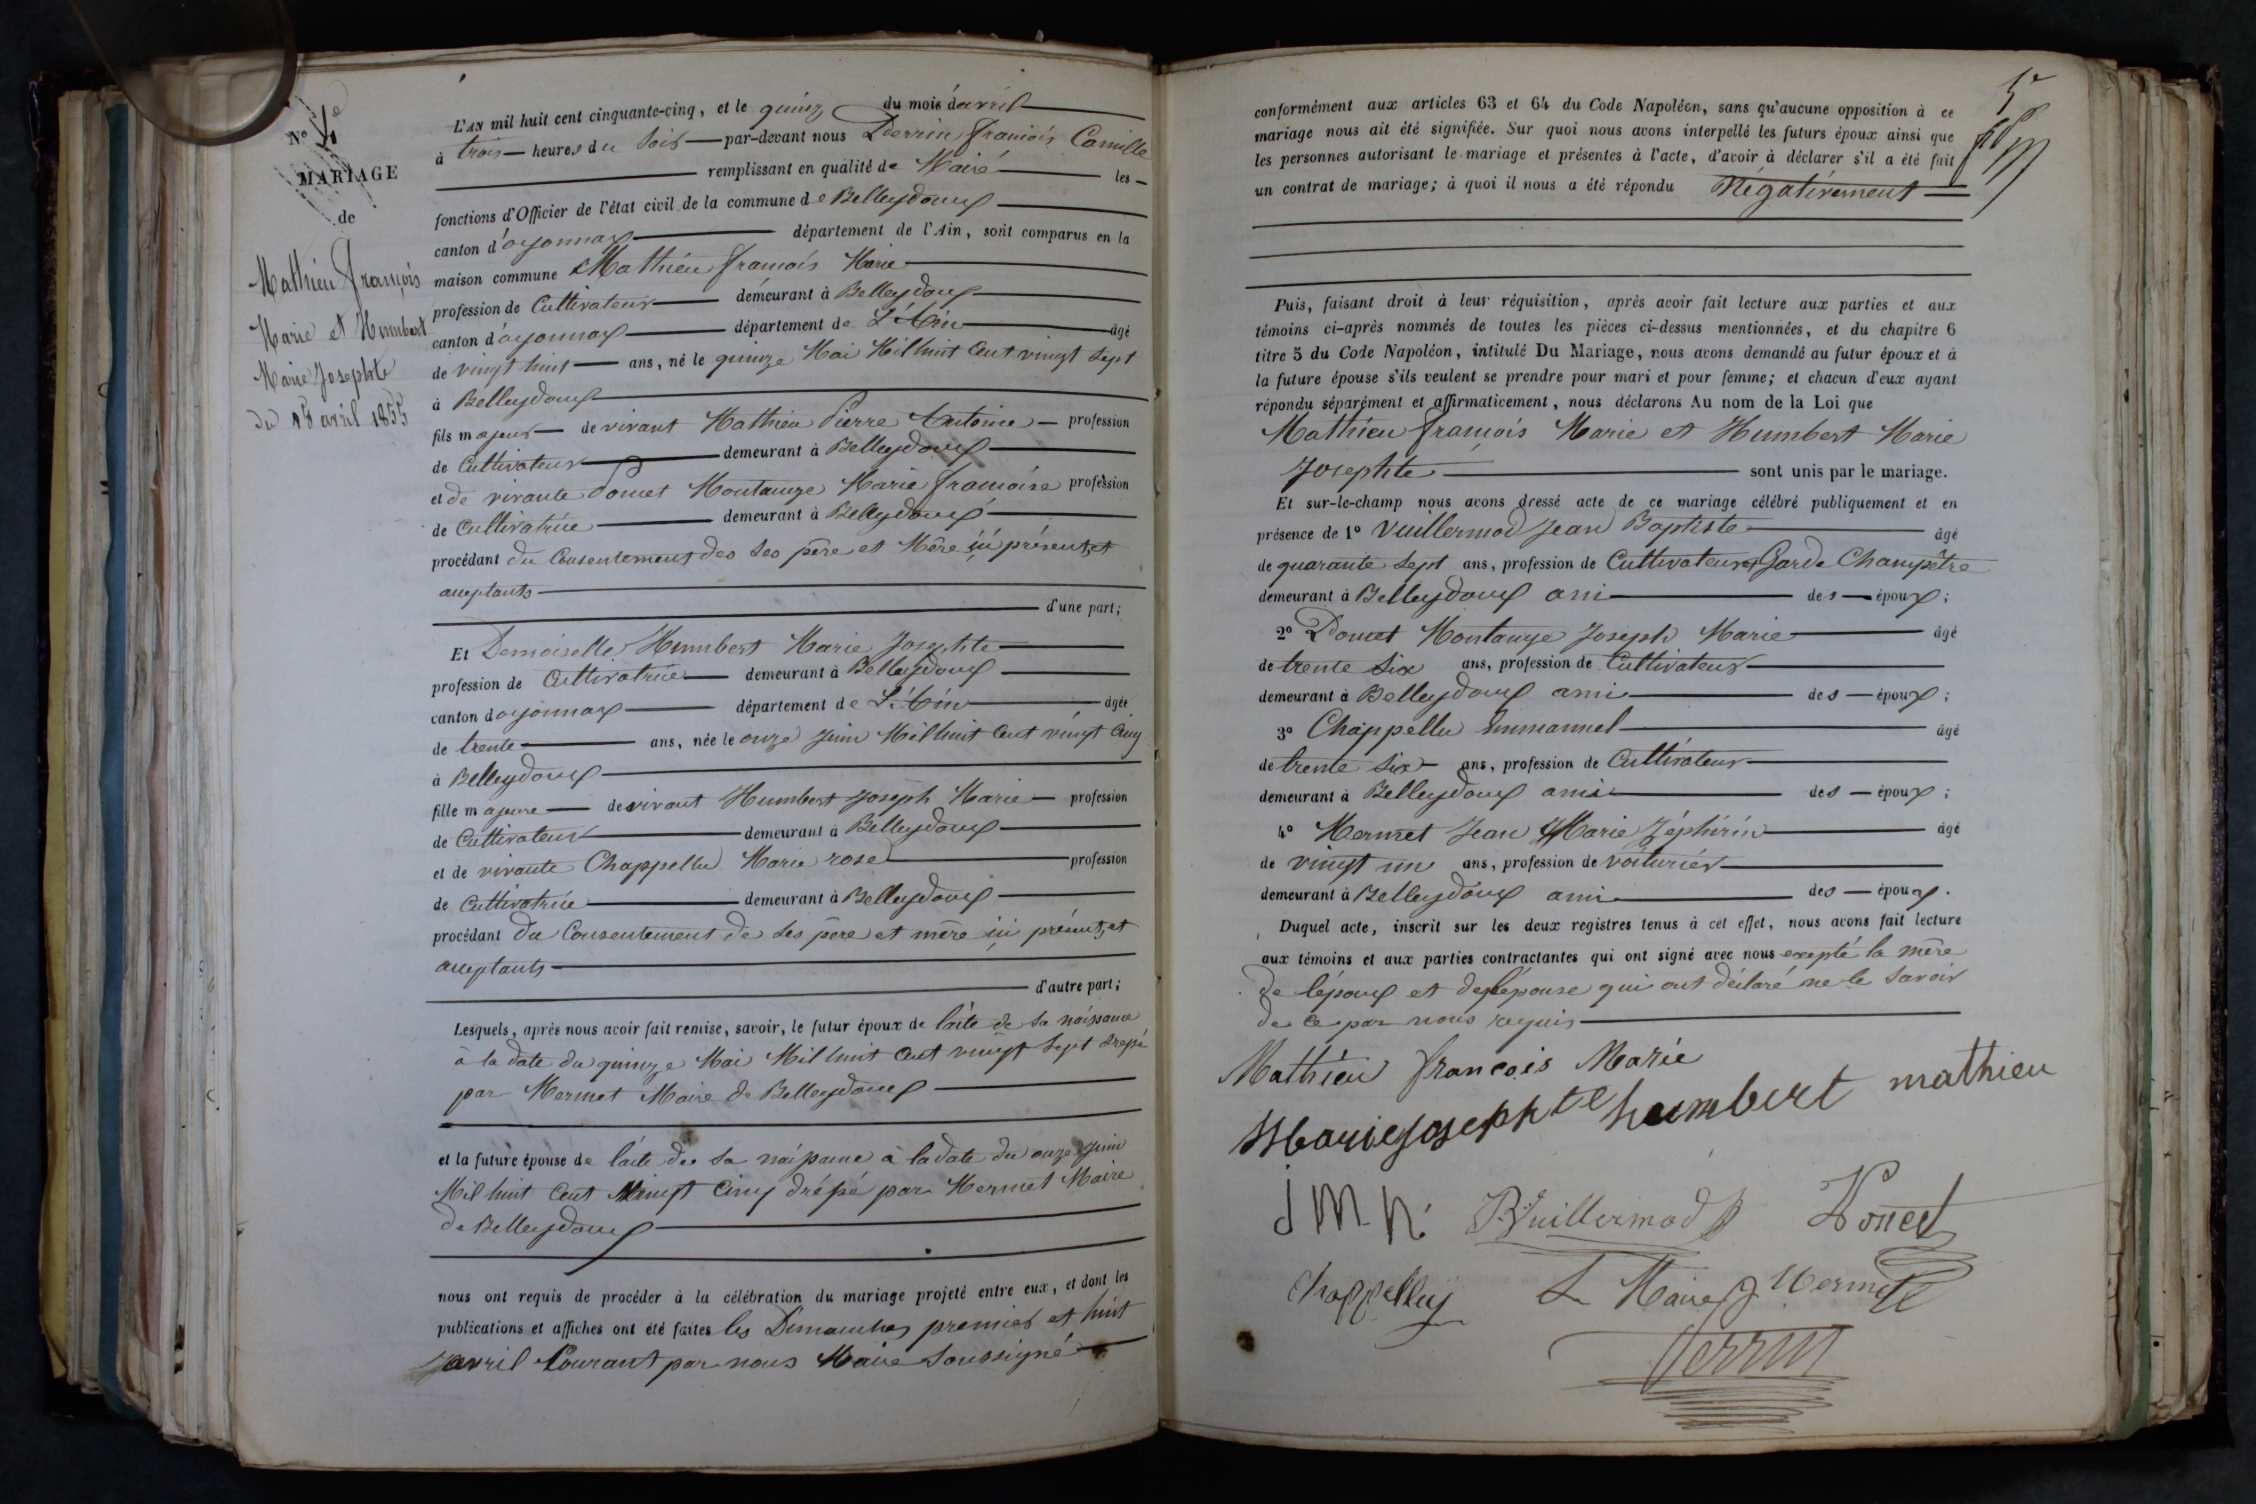 N° 4e
MARIAGE
de
Mathieu françois
Marie et Humbert
Marie Josephte
du 15 avril 1855
L'AN mil huit cent cinquante-cinq, et le quinz du mois d'avril
à trois heures du Soir par-devant nous Perrin françois Camille
remplissant en qualité de Maire les
fonctions d'Officier de l'état civil de la commune de Belleydoux
canton d'oyonnax département de l'Ain, sont comparus en la
maison commune Mathieu françois Marie
profession de Cultivateur demeurant à Belleydoux
canton d'oyonnax département de L'Ain âgé
de vingt huit ans, né le quinze Mai Mil huit Cent vingt Sept
à Belleydoux
fils majeur de vivant Mathieu Pierre Antoine profession
de Cultivateur demeurant à Belleydoux
et de vivante Pomet Montange Marie françoise profession
de Cultivatrice demeurant à Belleydoux
procédant du Consentement des Ses père et Mère ici présents, et
acceptants
d'une part;
Et Demoiselle Humbert Marie Josephte
profession de Cultivatrice demeurant à Belleydoux
canton d'oyonnax département de L'Ain âgée
de trente ans, née le onze Juin Mil huit Cent vingt Cinq
à Belleydoux
fille majeure de vivant Humbert Joseph Marie profession
de Cultivateur demeurant à Belleydoux
et de vivante Chappellu Marie rose profession
de Cultivatrice demeurant à Belleydoux
procédant du Consentement de Ses père et mère ici présents, et
acceptants
d'autre part;
Lesquels, après nous avoir fait remise, savoir, le futur époux de l'acte de Sa naissance
à la date du quinze Mai Mil huit Cent vingt Sept dressé
par Mermet Maire de Belleydoux
et la future épouse de l'acte de Sa naissance à la date du onze Juin
Mil huit Cent Vingt Cinq dréssé par Mermet Maire
de Belleydoux
nous ont requis de procéder à la célébration du mariage projeté entre eux, et dont les
publications et affiches ont été faites les Dimanches premier et huit
avril Courant par nous Maire Soussigné
5e
conformément aux articles 63 et 64 du Code Napoléon, sans qu'aucune opposition à ce
mariage nous ait été signifiée. Sur quoi nous avons interpellé les futurs époux ainsi que
les personnes autorisant le mariage et présentes à l'acte, d'avoir à déclarer s'il a été fait
un contrat de mariage; à quoi il nous a été répondu Négativement
Puis, faisant droit à leur réquisition, après avoir fait lecture aux parties et aux
témoins ci-après nommés de toutes les pièces ci-dessus mentionnées, et du chapitre 6
titre 5 du Code Napoléon, intitulé Du Mariage, nous avons demandé au futur époux et à
la future épouse s'ils veulent se prendre pour mari et pour femme; et chacun d'eux ayant
répondu séparément et affirmativement, nous déclarons Au nom de la Loi que
Mathieu françois Marie et Humbert Marie
Josephte sont unis par le mariage.
Et sur-le-champ nous avons dressé acte de ce mariage célébré publiquement et en
présence de 1° Vuillermod Jean Baptiste âgé
de quarante Sept ans, profession de Cultivateur, Garde Champêtre
demeurant à Belleydoux ami des époux;
2° Pomet Montange Joseph Marie âgé
de trente Six ans, profession de Cultivateur
demeurant à Belleydoux ami des époux;
3° Chappellu Emmanuel âgé
de trente Six ans, profession de Cultivateur
demeurant à Belleydoux ami des époux;
4° Mermet Jean Marie Zéphirin âgé
de vingt un ans, profession de voiturier
demeurant à Belleydoux ami des époux.
Duquel acte, inscrit sur les deux registres tenus à cet effet, nous avons fait lecture
aux témoins et aux parties contractantes qui ont signé avec nous excepté la mère
de l'époux et de l'épouse qui ont déclaré ne le Savoir
de ce par nous requis
Mathieu françois Marie
Marie josephte humbert mathieu
J M h. B Vuillermod Ponet
Chappelluy L Maire J Mermet
Perrin